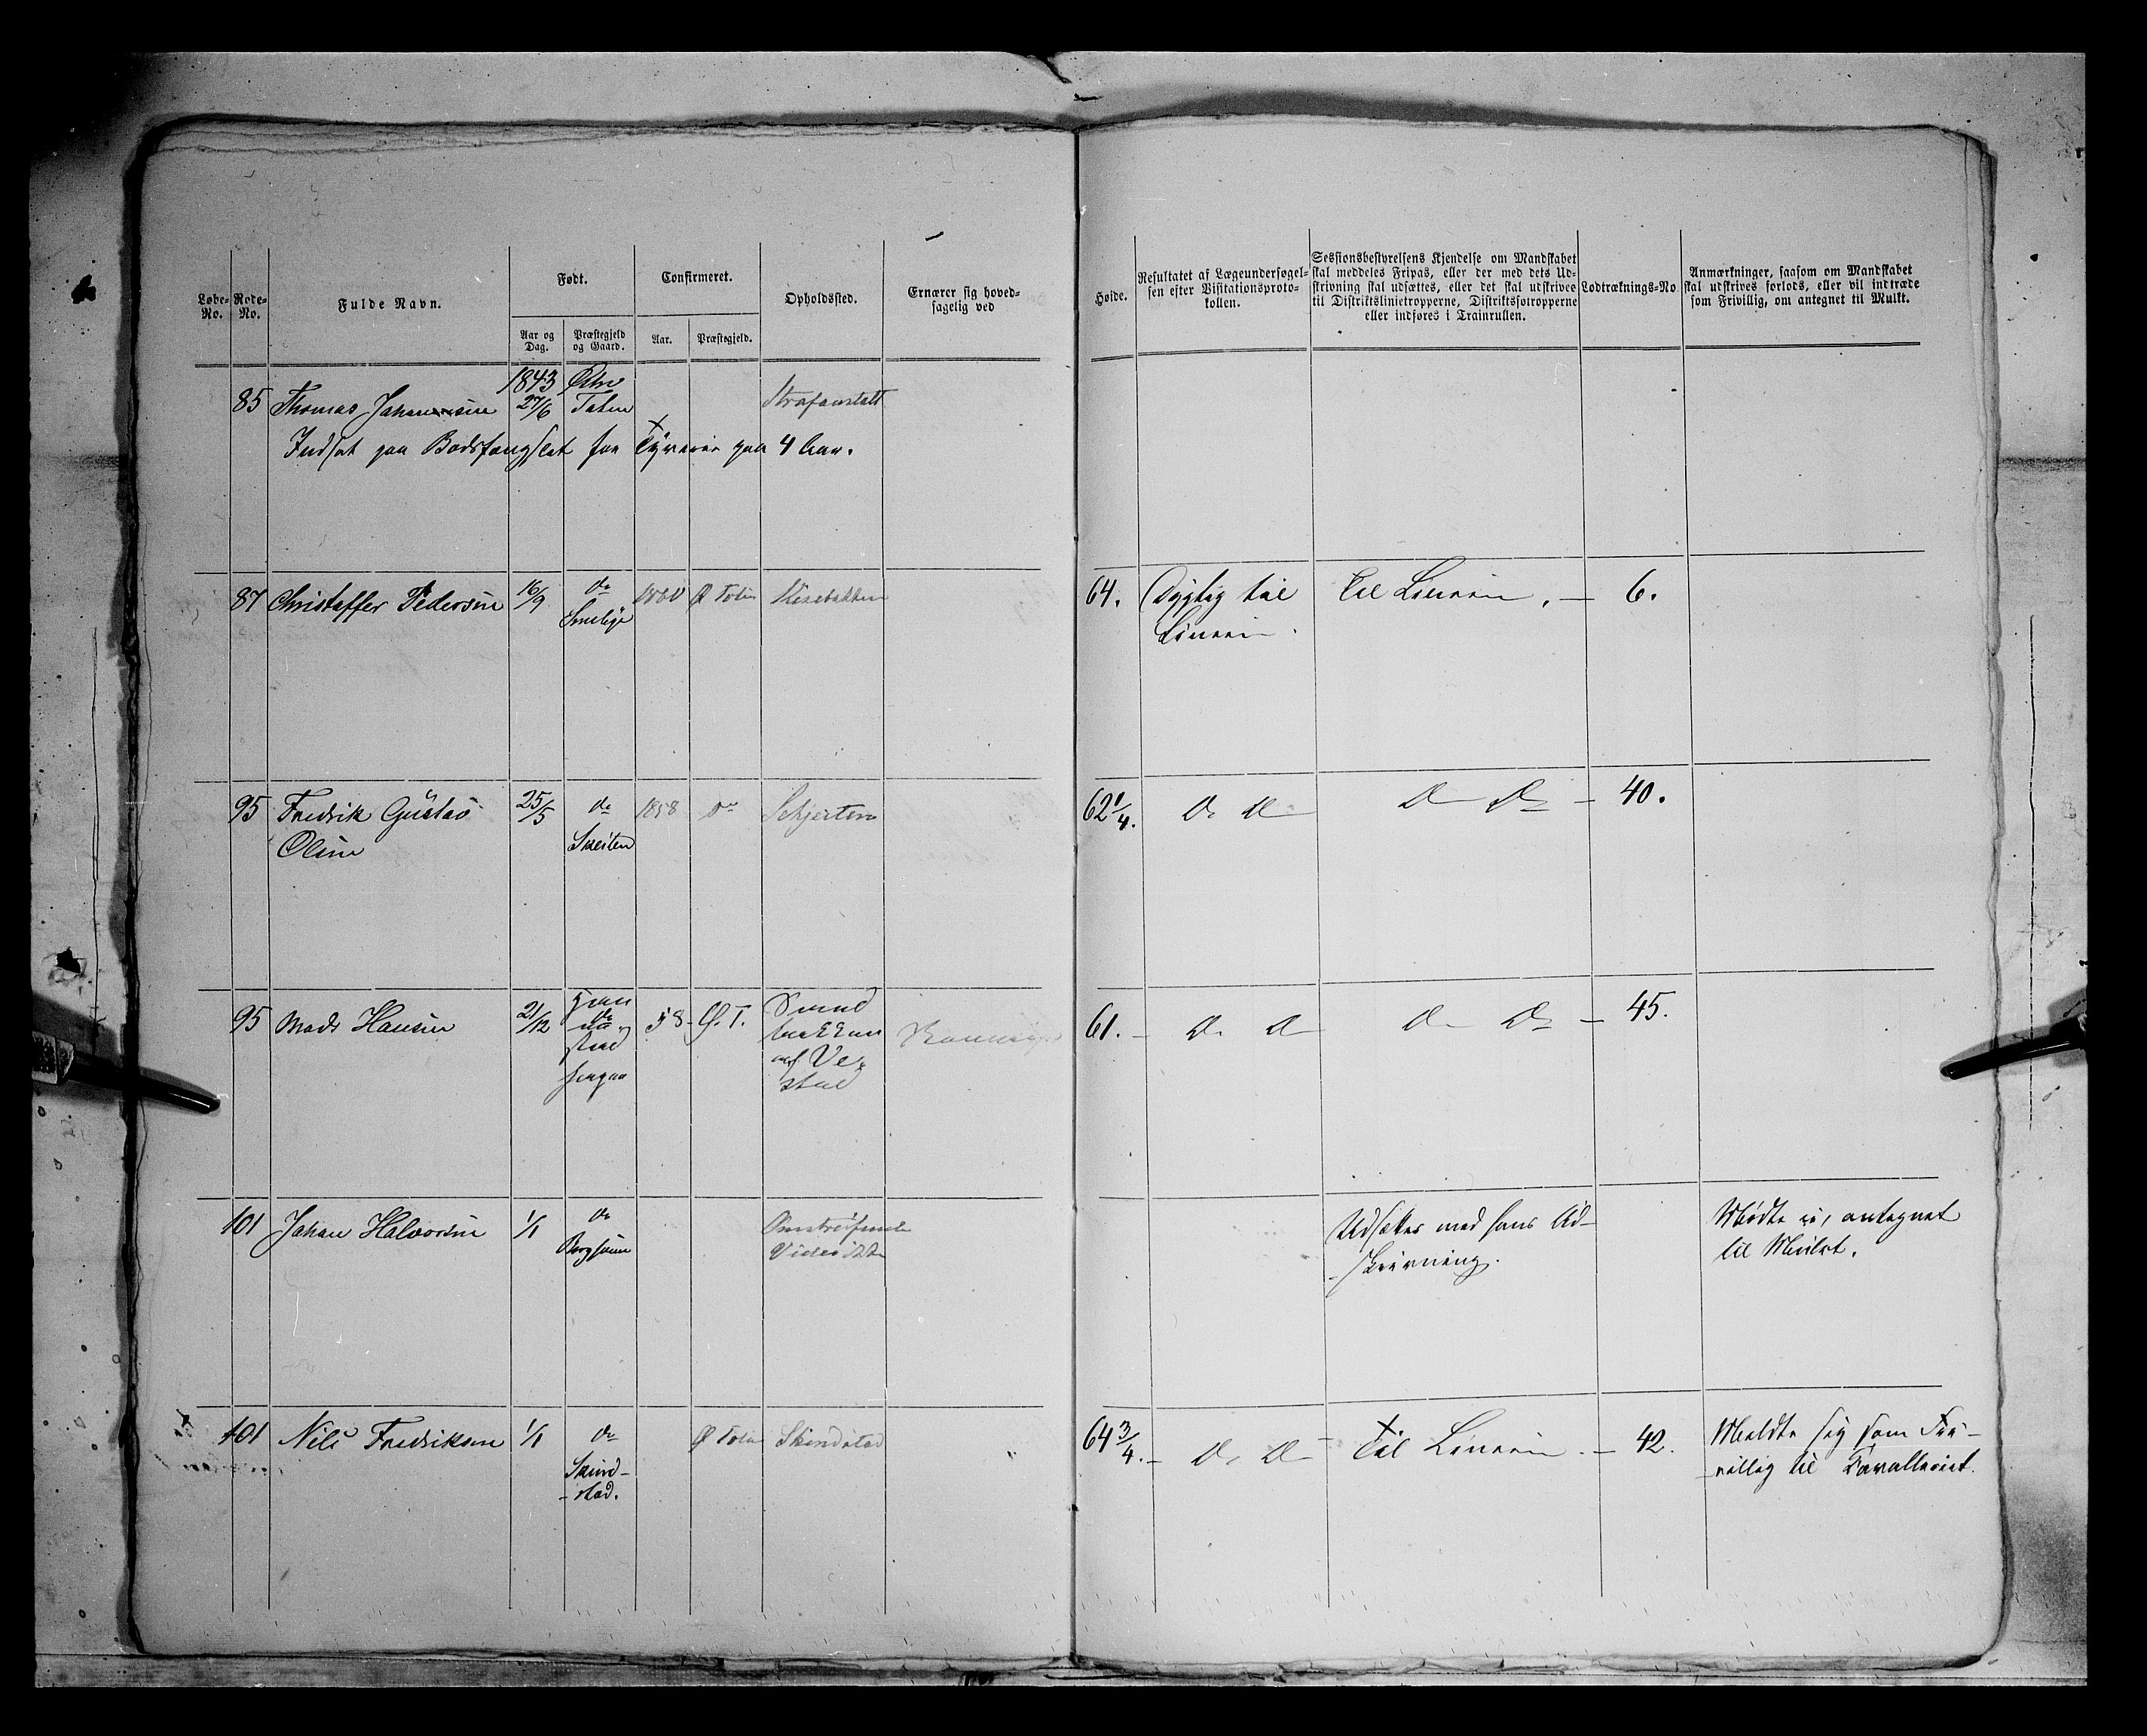 Løbe-No.
Rode-No.
Fulde Navn.
Født.
Aar og Dag.
Præstegjeld og Gaard.
Confirmeret.
Aar.
Præstegjeld.
Opholdssted.
Ernærer sig hoved-
sagelig ved
Høide.
Resultatet af Lægeundersøgel-
sen efter Visitationsproto-
kollen.
Sessionsbestyrelsens Kjendelse om Mandskabet
skal meddeles Fripas, eller der med dets Ud-
skrivning skal udsættes, eller det skal udskrives
til Distriktslinietropperne, Distriktsfotropperne
eller indføres i Trainrullen.
Lodtræknings-No.
Anmærkninger, saasom om Mandskabet
skal udskrives forlods, eller vil indtræde
som Frivillig, om antegnet til Mulkt.
85 Thomas Johannesen 1843 27/6 Østre Toten Strafanstalt
Indsat paa Bodsfængslet for Tyverie paa 4 Aar.
87 Christoffer Pedersen 16/9 do 1860 Ø Toten 64. Dygtig til Til Linien. – 6.
Linien.
95 Fredrik Gustav 25/5 do 1858 do 62 1/4. Do Do Do Do – 40.
Olsen Skeiten
95 Mads Hansen 21/12 58 Ø. T. 61. – Do Do Do Do – 45.
101 Johan Halvorsen 1/1 do Omstreifende Udsættes med hans Ud- Mødte ei, antegnet
-skrivning. til Mulct.
101 Nils Fredriksen 1/1 do Ø Toten Skindstad 64 3/4. – Do Do Til Linien. – 42. Meldte sig som Fri-
Skind- -villig til Cavalleriet.
-stad.